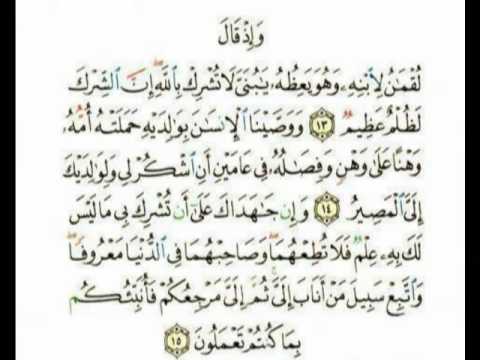 وَإِذْ قَالَ
لُقْمَٰنُ لِٱبْنِهِۦ وَهُوَ يَعِظُهُۥ يَٰبُنَىَّ لَا تُشْرِكْ بِٱللَّهِ ۖ إِنَّ ٱلشِّرْكَ
لَظُلْمٌ عَظِيمٌ ۝١٣ وَوَصَّيْنَا ٱلْإِنسَٰنَ بِوَٰلِدَيْهِ حَمَلَتْهُ أُمُّهُۥ
وَهْنًا عَلَىٰ وَهْنٍ وَفِصَٰلُهُۥ فِى عَامَيْنِ أَنِ ٱشْكُرْ لِى وَلِوَٰلِدَيْكَ
إِلَىَّ ٱلْمَصِيرُ ۝١٤ وَإِن جَٰهَدَاكَ عَلَىٰٓ أَن تُشْرِكَ بِى مَا لَيْسَ
لَكَ بِهِۦ عِلْمٌ فَلَا تُطِعْهُمَا ۖ وَصَاحِبْهُمَا فِى ٱلدُّنْيَا مَعْرُوفًا ۖ
وَٱتَّبِعْ سَبِيلَ مَنْ أَنَابَ إِلَىَّ ۚ ثُمَّ إِلَىَّ مَرْجِعُكُمْ فَأُنَبِّئُكُم
بِمَا كُنتُمْ تَعْمَلُونَ ۝١٥